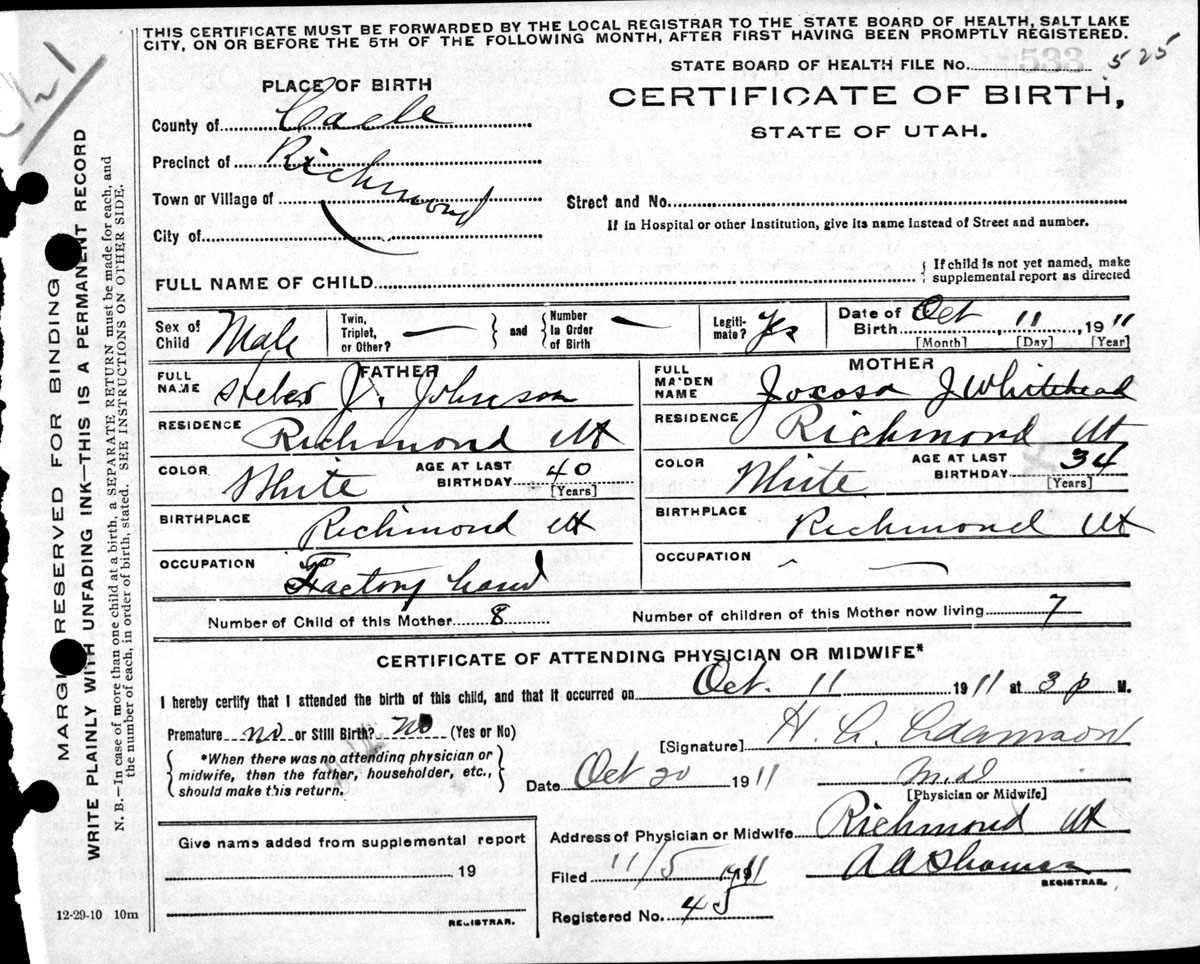 THIS CERTIFICATE MUST BE FORWARDED BY THE LOCAL REGISTRAR TO THE STATE BOARD OF HEALTH, SALT LAKE
CITY, ON OR BEFORE THE 5TH OF THE FOLLOWING MONTH, AFTER FIRST HAVING BEEN PROMPTLY REGISTERED.
STATE BOARD OF HEALTH FILE No. 533 525
PLACE OF BIRTH
CERTIFICATE OF BIRTH,
STATE OF UTAH.
County of Cache
Precinct of Richmond
Town or Village of
Street and No.
City of
If in Hospital or other Institution, give its name instead of Street and number.
FULL NAME OF CHILD
{ If child is not yet named, make
supplemental report as directed
Sex of Child Male
Twin, Triplet, or Other? —
} and {
Number In Order of Birth —
Legitimate? Yes
Date of Birth Oct, 11, 1911
[Month] [Day] [Year]
FATHER
FULL NAME J. Johnson
RESIDENCE Richmond Ut
COLOR White
AGE AT LAST BIRTHDAY 40
[Years]
BIRTHPLACE Richmond Ut
OCCUPATION Factory hand
MOTHER
FULL MAIDEN NAME Jocosa J Whitehead
RESIDENCE Richmond Ut
COLOR White
AGE AT LAST BIRTHDAY 34
[Years]
BIRTHPLACE Richmond Ut
OCCUPATION - —
Number of Child of this Mother 8
Number of children of this Mother now living 7
CERTIFICATE OF ATTENDING PHYSICIAN OR MIDWIFE*
I hereby certify that I attended the birth of this child, and that it occurred on Oct. 11 1911 at 3 p M.
Premature no or Still Birth? no (Yes or No)
[Signature] Adamson
{ *When there was no attending physician or
midwife, then the father, householder, etc.,
should make this return. }
Date Oct 20 1911
M.d.
[Physician or Midwife]
Address of Physician or Midwife Richmond Ut
Give name added from supplemental report
19
REGISTRAR.
Filed 11/5 1911
REGISTRAR.
Registered No. 45
12-29-10 10m
MARGIN RESERVED FOR BINDING
WRITE PLAINLY WITH UNFADING INK—THIS IS A PERMANENT RECORD
N. B.—In case of more than one child at a birth, a SEPARATE RETURN must be made for each, and
the number of each, in order of birth, stated. SEE INSTRUCTIONS ON OTHER SIDE.